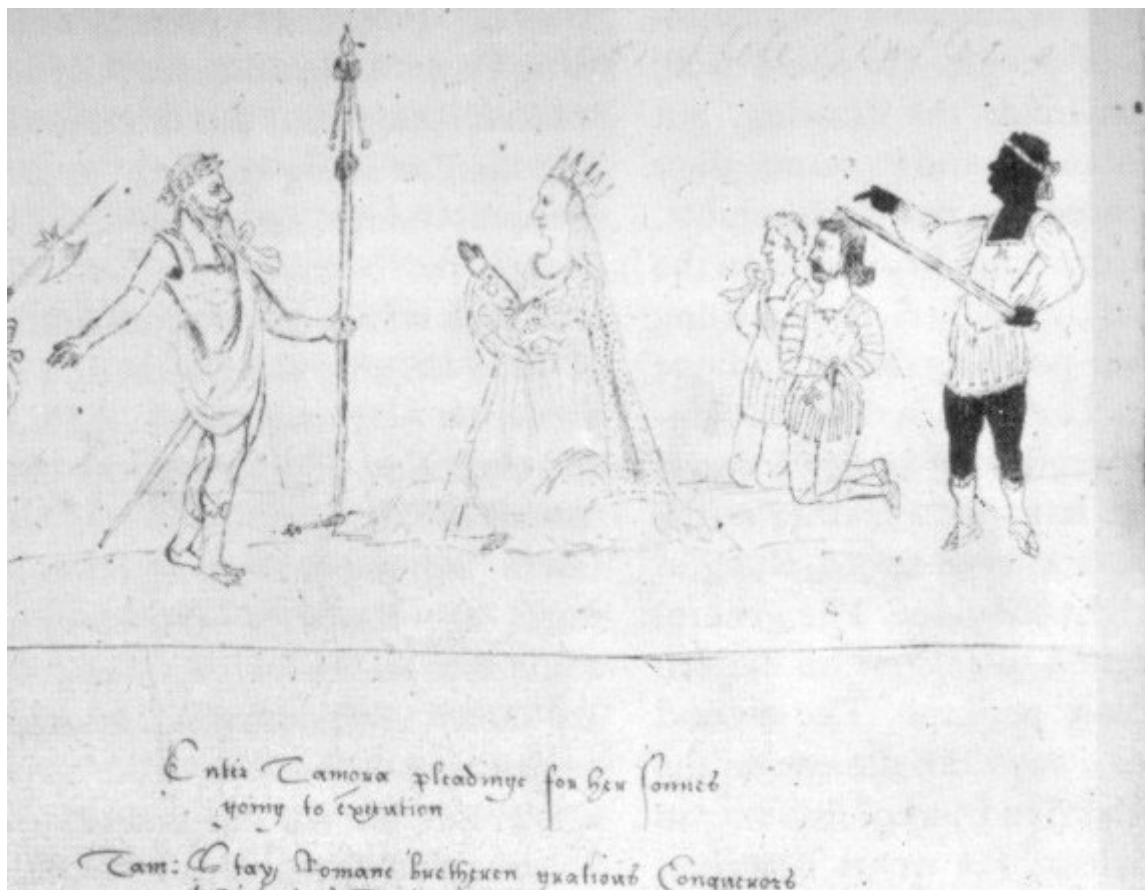 Enter Tamora pleadinge for her sonnes
going to execution
Tam: Stay Romane bretheren gratious Conquerors